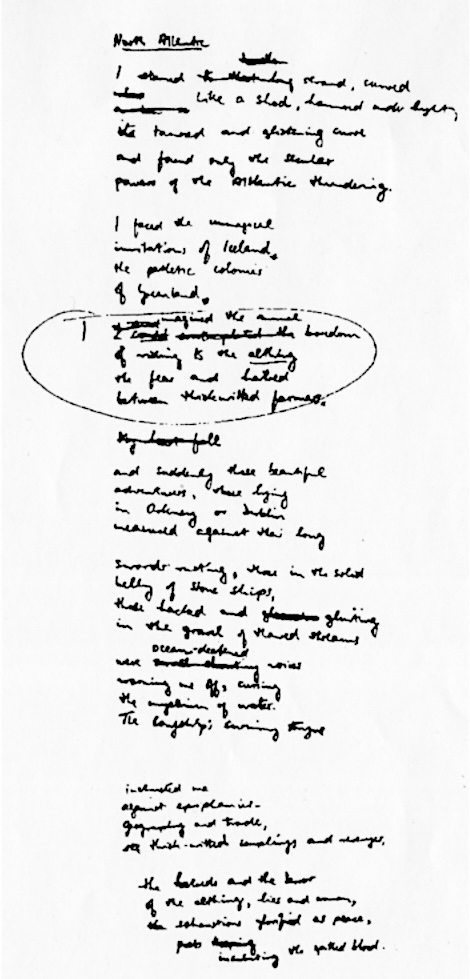 North Atlantic
I the long strand, curved
like a shod, hammered under light,
the and glistening curve
and found only the secular
powers of the Atlantic thundering.
I faced the unmagical
invitations of Iceland,
the pathetic colonies
of Greenland,
I imagined the annual
boredom
of riding to the althing
the fear and hatred
between thickwitted farmers.
fall
and suddenly those beautiful
adventurers, those lying
in Orkney or Dublin
measured against their long
swords rusting, those in the solid
belly of stone ships,
those hacked and glinting
in the gravel of thawed streams
ocean-deafened
were voices
warning me off, cursing
the of water.
The longship's swimming tongue
instructed me
against
geography and trade,
thick-witted couplings and revenges,
the hatreds and the
of the althing, lies and women,
the exhaustions glorified as peace,
incubating the spilled blood.